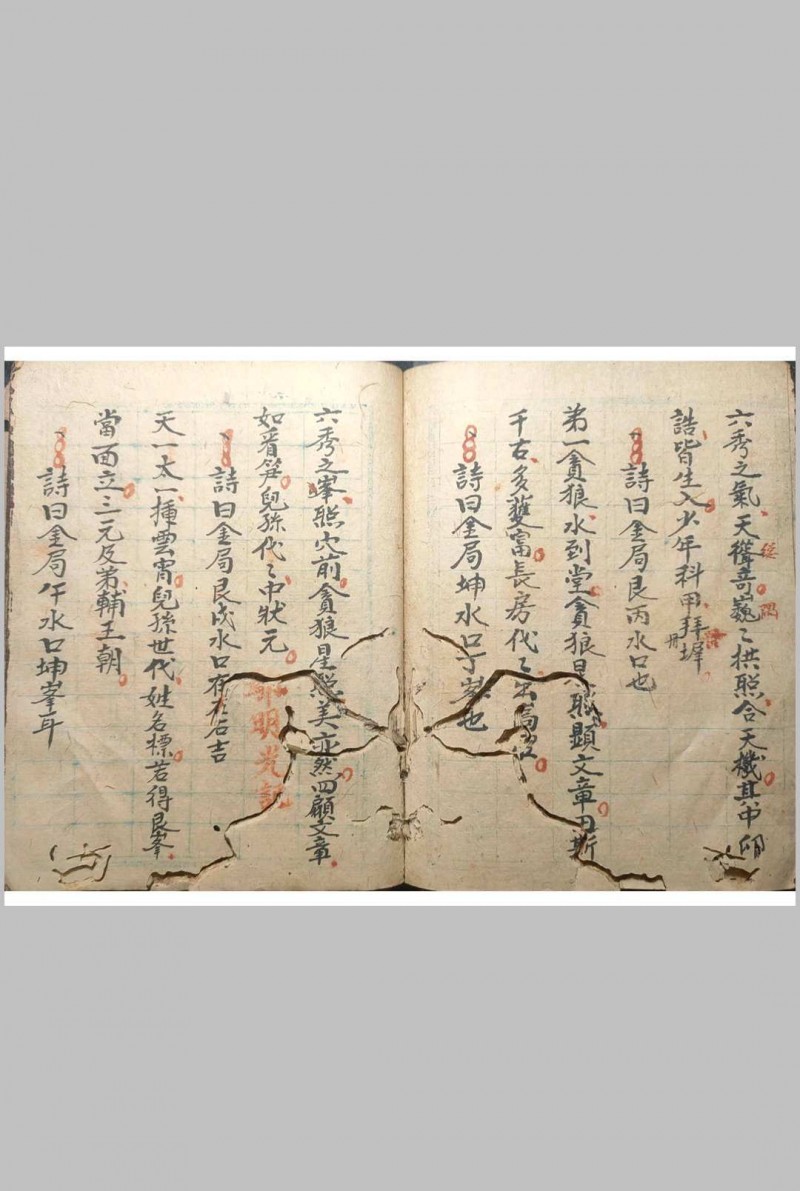 六秀之氣天𨓜竒巍〻拱照合天機其中卯
誥皆生入少年科甲拜墀
詩曰金局艮丙水口也
第一貪狼水到堂貪狼 職顯文章 斯
千古多獲富長房代〻出
詩曰金局坤水口丁峯也
六秀之峯照穴前貪狼星 美亦然四顧文章
如看笋兒孫代〻中狀元
詩曰金局艮戌水口 吉
天一太一揷雲霄兒孫世代姓名標若得艮峯
當面立三元及第輔王朝
詩曰金局午水口坤峯耳
明 記